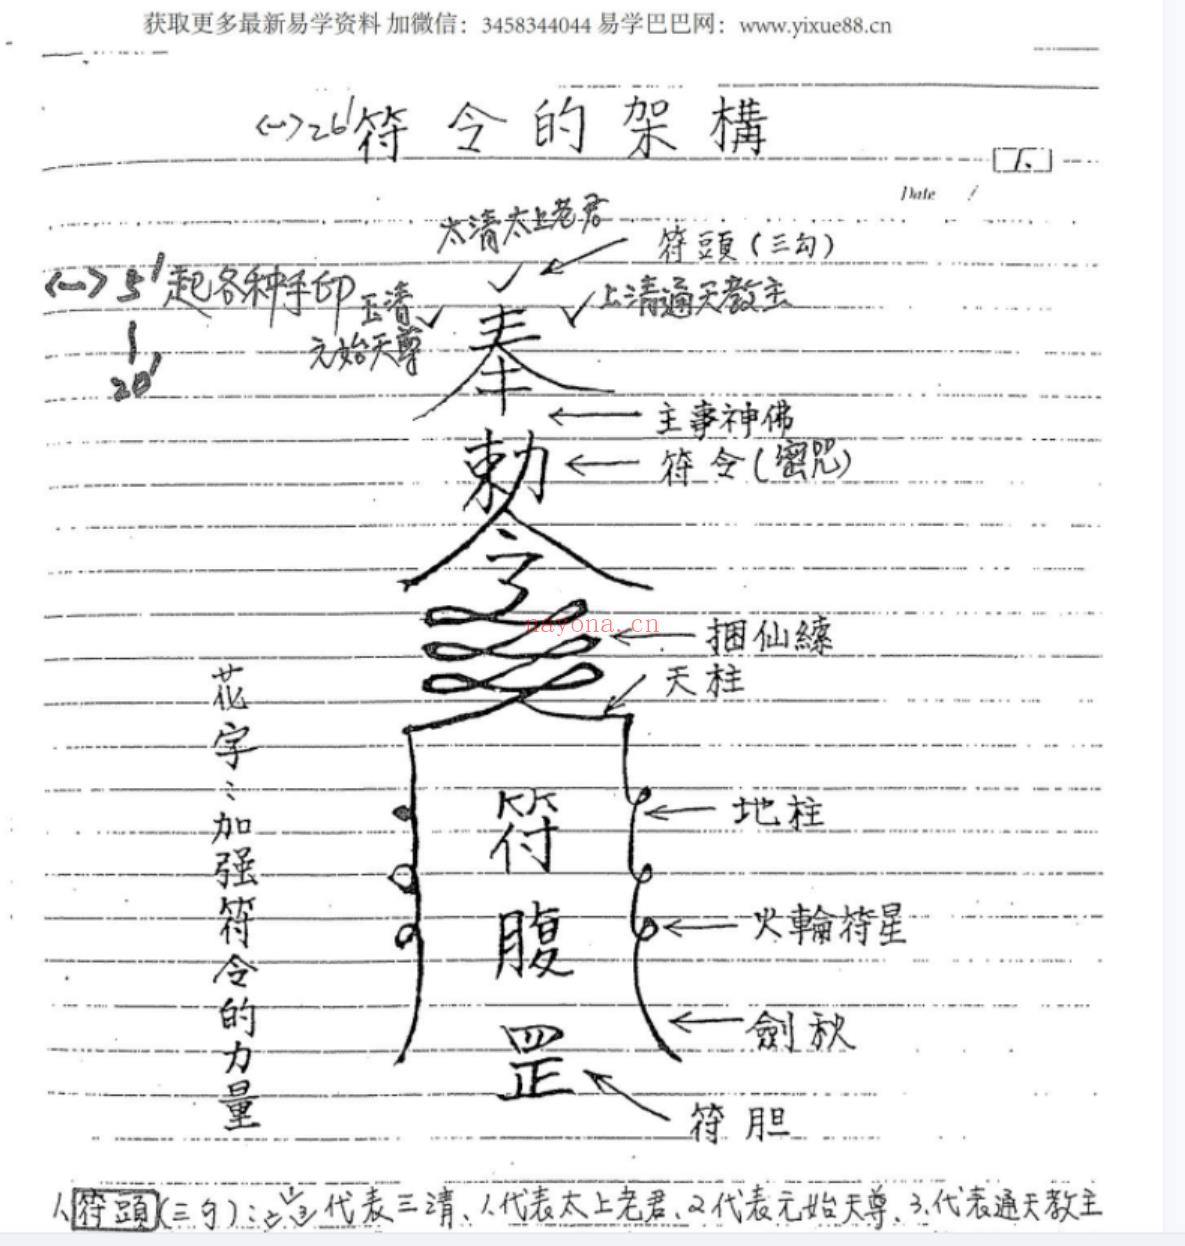 获取更多最新易学资料 加微信：3458344044 易学巴巴网：www.yixue88.cn
<一>26' 符令的架構
1.
Date
太清太上老君
符頭(三勾)
<一>5' 起各种手印
20'
玉清
元始天尊
上清通天教主
奉
主事神佛
勅
符令(密咒)
令
nayona.cn
捆仙練
天柱
花字：加强符令的力量
符
地柱
腹
火輪符星
劍秋
罡
符胆
1.符頭(三勾)：代表三清、1.代表太上老君、2.代表元始天尊、3.代表通天教主